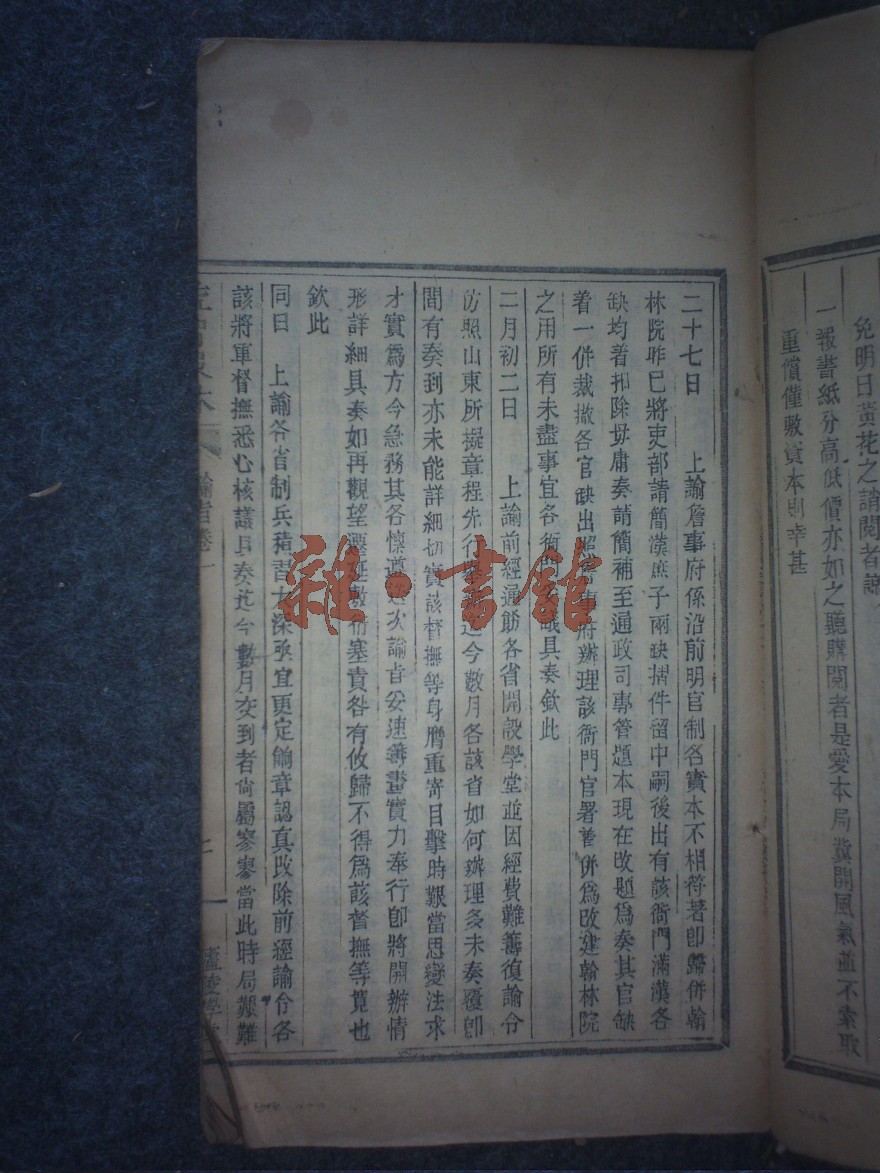 免明日黃花之誚閱者諒
一報書紙分高低價亦如之聽購閱者是愛本局冀開風氣並不索取
重償僅敷資本則幸甚
二十七日 上諭詹事府係沿前明官制名實本不相符著即歸併翰
林院昨已將吏部請簡漢庶子兩缺摺件留中嗣後出有該衙門滿漢各
缺均着扣除毋庸奏請簡補至通政司專管題本現在改題為奏其官缺
着一併裁撤各官缺出照詹事府辦理該衙門官署著併為改建翰林院
之用所有未盡事宜各衙門具奏欽此
二月初二日 上諭前經通飭各省開設學堂並因經費難籌復諭令
仿照山東所擬章程先行今數月各該省如何辦理多未奏覆即
間有奏到亦未能詳細切實該督撫等身膺重寄目擊時艱當思變法求
才實為方今急務其各懍遵迭次諭旨妥速籌畫實力奉行即將開辦情
形詳細具奏如再觀望遷延敷衍塞責咎有攸歸不得為該督撫等寬也
欽此
同日 上諭各省制兵積習太深亟宜更定餉章認真改除前經諭令各
該將軍督撫悉心核議具奏迄今數月奏到者尚屬寥寥當此時局艱難
諭旨卷一
雜·書館